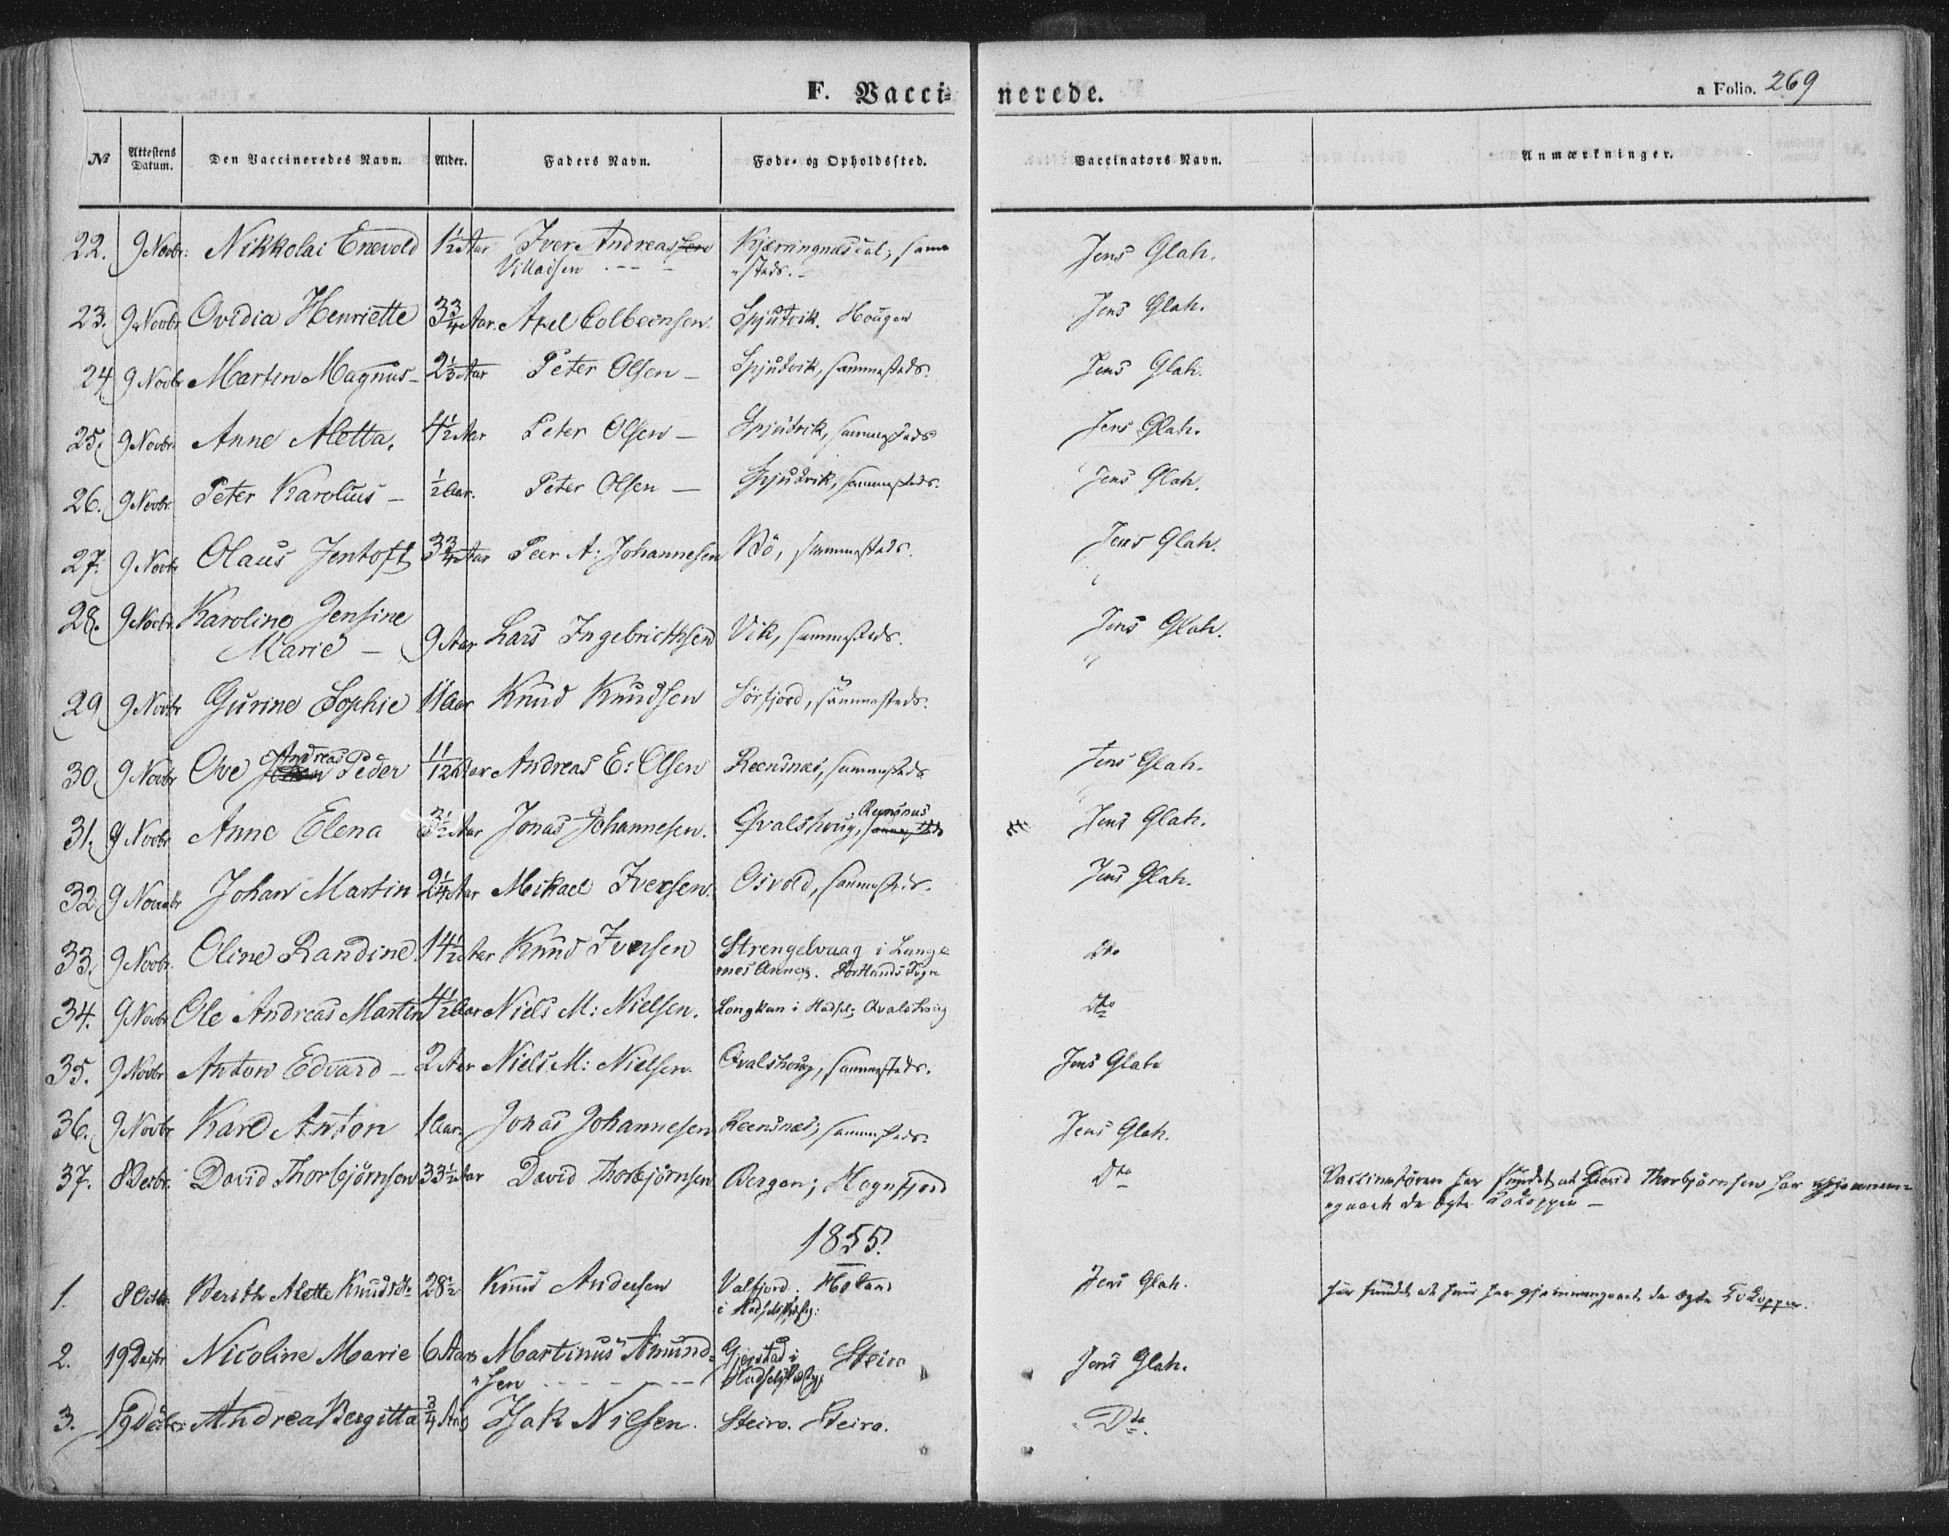 F. Vaccinerede. a Folio. 269
№ Attestens Datum. Den Vaccineredes Navn. Alder. Faders Navn. Føde- og Opholdssted. Vaccinators Navn. Anmærkninger.
22. 9 Novbr: Nikkolai Enevold 1½ Aar Iver Andreas Kjærringnæsdal, samme Jens Glah.
steds.
23. 9 Novbr Ovidia Henriette 3¾ Aar. Axel Colbeensen. Spjutvik. Hougen Jens Glah.
24 9 Novbr Marten Magnus – 2⅓ Aar Peter Olsen – Spjudvik, sammesteds. Jens Glah.
25. 9 Novbr. Anne Aletta. 4½ Aar Peter Olsen – Spjudvik, sammesteds Jens Glah.
26. 9 Novbr. Peter Karolius – ½ Aar. Peter Olsen – Spjudvik, sammesteds. Jens Glah.
27. 9 Novbr Olaus Jentoft 3¾ Aar Peer A: Johannesen Bö, sammesteds. Jens Glah.
28. 9 Novbr. Karoline Jensine
Marie – 9 Aar Lars Ingebrichtsen Vik, sammesteds. Jens Glah.
29 9 Novbr Gurine Sophie 11 Aar Knud Knudsen Sörfjord, sammesteds.
30. 9 Novbr Ove Andreas Peder 11/12 Aar Andreas E: Olsen Reensnæs, sammesteds Jens Glah.
31. 9 Novbr Anne Elena 3½ Aar Jonas Johannesen. Qvalshoug, sammesteds Reensnæs Jens Glah.
32. 9 Novbr Johan Martin 2¼ Aar Mikael Iversen. Osvold, sammesteds. Jens Glah.
33. 9 Novbr. Oline Randine 14½ Aar Knud Iversen Strengelvaag i Lange- Dto
næs Annex. Sortlands Sogn
34. 9 Novbr Ole Andreas Martin 4½ Aar Niels M: Nielsen. Langkan i Hadsel; Qvalshoug Dto
35. 9 Novbr Anton Edvard – 2 Aar Niels M: Nielsen. Qvalshoug, sammesteds. Jens Glah
36. 9 Novbr Karl Anton 1 Aar. Jonas Johannesen Reensnæs, sammesteds. Jens Glah.
37. 8 Decbr. David Thorbjörnsen 33½ Aar David Thorbjörnsen Bergen; Hognfjord Dto Vaccinatören har fundet at David Thorbjörnsen har gjennem-
gaaet de ægte Kokopper –
1855.
1. 8 Octbr. Berith Alette Knudsdtr 28½ Knud Andersen Valfjord. Holand Jens Glah. har fundet at hun har gjennemgaaet de ægte Kokopper.
i Hadsels Præstg:
2. 19 Decbr Nicoline Marie 6 Aar Martinus Amund- Gjerstad i Steiro Jens Glah.
sen – – – Hadsels Præstg.
3. 19 Decbr: Andrea Bergitta ¾ Aar Isak Nilsen. Steiro. Steiro. Dto.